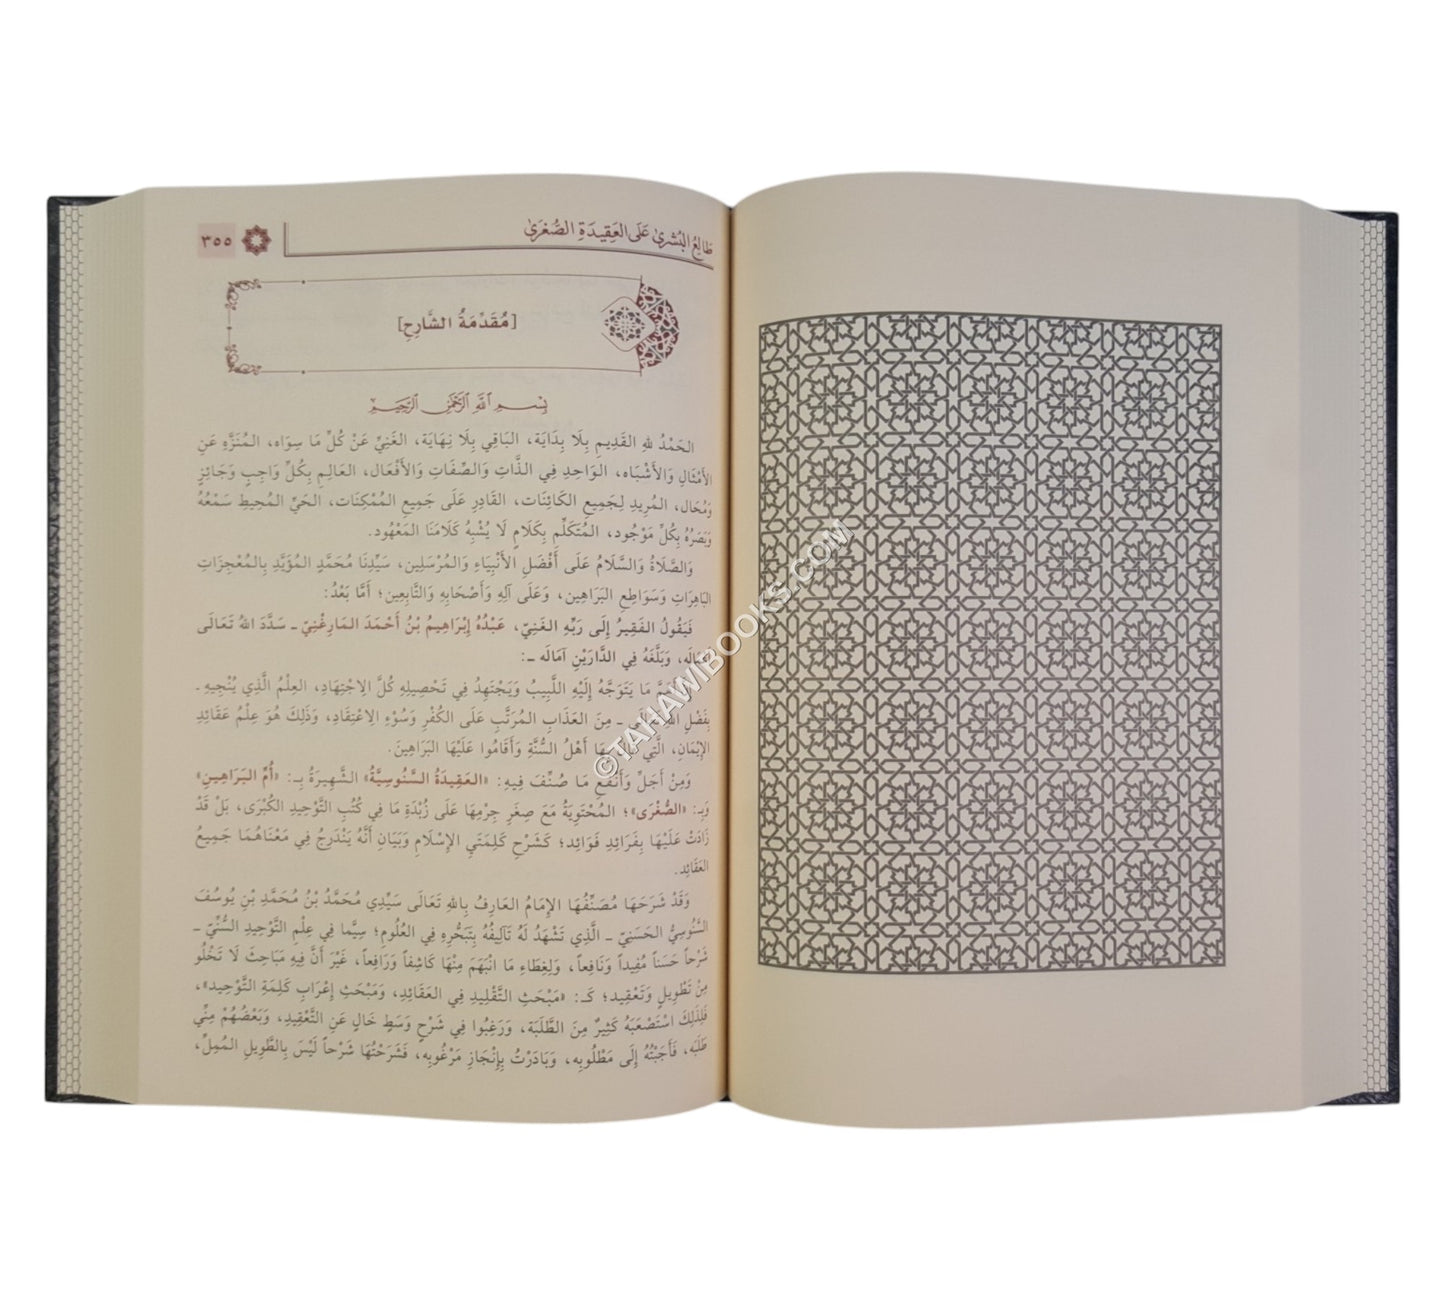 طَالِعُ البُشرىٰ عَلَى العَقِيدَةِ الصُّغرَىٰ
٣٥٥
[مُقَدِّمَةُ الشَّارِحِ]
بِسْمِ اللهِ الرَّحْمَنِ الرَّحِيمِ
الحَمْدُ للهِ القَدِيمِ بِلَا بِدَايَة، البَاقِي بِلَا نِهَايَة، الغَنِيِّ عَنْ كُلِّ مَا سِوَاه، المُنَزَّهِ عَنِ
الأَمْثَالِ وَالأَشْبَاه، الوَاحِدِ فِي الذَّاتِ وَالصِّفَاتِ وَالأَفْعَال، العَالِمِ بِكُلِّ وَاجِبٍ وَجَائِزٍ
وَمُحَال، المُرِيدِ لِجَمِيعِ الكَائِنَات، القَادِرِ عَلَى جَمِيعِ المُمْكِنَات، الحَيِّ المُحِيطِ سَمْعُهُ
وَبَصَرُهُ بِكُلِّ مَوْجُود، المُتَكَلِّمِ بِكَلَامٍ لَا يُشْبِهُ كَلَامَنَا المَعْهُود.
وَالصَّلَاةُ وَالسَّلَامُ عَلَى أَفْضَلِ الأَنْبِيَاءِ وَالمُرْسَلِين، سَيِّدِنَا مُحَمَّدٍ المُؤَيَّدِ بِالمُعْجِزَاتِ
البَاهِرَاتِ وَسَوَاطِعِ البَرَاهِين، وَعَلَى آلِهِ وَأَصْحَابِهِ وَالتَّابِعِين؛ أَمَّا بَعْدُ:
فَيَقُولُ الفَقِيرُ إِلَى رَبِّهِ الغَنِيّ، عَبْدُهُ إِبْرَاهِيمُ بْنُ أَحْمَدَ المَارِغْنِيّ ـ سَدَّدَ اللهُ تَعَالَى
وَبَلَّغَهُ فِي الدَّارَيْنِ آمَالَه ـ:
مَا يَتَوَجَّهُ إِلَيْهِ اللَّبِيبُ وَيَجْتَهِدُ فِي تَحْصِيلِهِ كُلَّ الِاجْتِهَادِ، العِلْمُ الَّذِي يُنْجِيهِ ـ
بِفَضْلِ ـ مِنَ العَذَابِ المُرَتَّبِ عَلَى الكُفْرِ وَسُوْءِ الِاعْتِقَادِ، وَذَلِكَ هُوَ عِلْمُ عَقَائِدِ
الإِيْمَانِ، الَّتِي أَهْلُ السُّنَّةِ وَأَقَامُوا عَلَيْهَا البَرَاهِينَ.
وَمِنْ أَجَلِّ وَأَنْفَعِ مَا صُنِّفَ فِيهِ: «العَقِيدَةُ السَّنُوسِيَّةُ» الشَّهِيرَةُ بِـ: «أُمِّ البَرَاهِينِ»
وَبِـ: «الصُّغْرَى»؛ المُحْتَوِيَةُ مَعَ صِغَرِ جِرْمِهَا عَلَى زُبْدَةِ مَا فِي كُتُبِ التَّوْحِيدِ الكُبْرَى، بَلْ قَدْ
زَادَتْ عَلَيْهَا بِفَرَائِدِ فَوَائِد؛ كَشَرْحِ كَلِمَتَيِ الإِسْلَامِ وَبَيَانِ أَنَّهُ يَنْدَرِجُ فِي مَعْنَاهُمَا جَمِيعُ
العَقَائِد.
وَقَدْ شَرَحَهَا مُصَنِّفُهَا الإِمَامُ العَارِفُ بِاللهِ تَعَالَى سَيِّدِي مُحَمَّدُ بْنُ مُحَمَّدِ بْنِ يُوسُفَ
السَّنُوسِيُّ الحَسَنِيّ ـ الَّذِي تَشْهَدُ لَهُ تَآلِيفُهُ بِتَبَحُّرِهِ فِي العُلُومِ؛ سِيَّمَا فِي عِلْمِ التَّوْحِيدِ السُّنِّيّ ـ
شَرْحاً حَسَناً مُفِيداً وَنَافِعاً، وَلِغِطَاءِ مَا انْبَهَمَ مِنْهَا كَاشِفاً وَرَافِعاً، غَيْرَ أَنَّ فِيهِ مَبَاحِثَ لَا تَخْلُو
مِنْ تَطْوِيلٍ وَتَعْقِيد؛ كَـ: «مَبْحَثِ التَّقْلِيدِ فِي العَقَائِدِ، وَمَبْحَثِ إِعْرَابِ كَلِمَةِ التَّوْحِيدِ»،
فَلِذَلِكَ اسْتَصْعَبَهُ كَثِيرٌ مِنَ الطَّلَبَة، وَرَغِبُوا فِي شَرْحٍ وَسَطٍ خَالٍ عَنِ التَّعْقِيدِ، وَبَعْضُهُمْ مِنِّي
طَلَبَه، فَأَجَبْتُهُ إِلَى مَطْلُوبِه، وَبَادَرْتُ بِإِنْجَازِ مَرْغُوبِه، فَشَرَحْتُهَا شَرْحاً لَيْسَ بِالطَّوِيلِ المُمِلِّ،
©TAHAWIBOOKS.COM